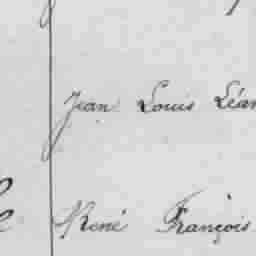 Jean Louis Léan
René François